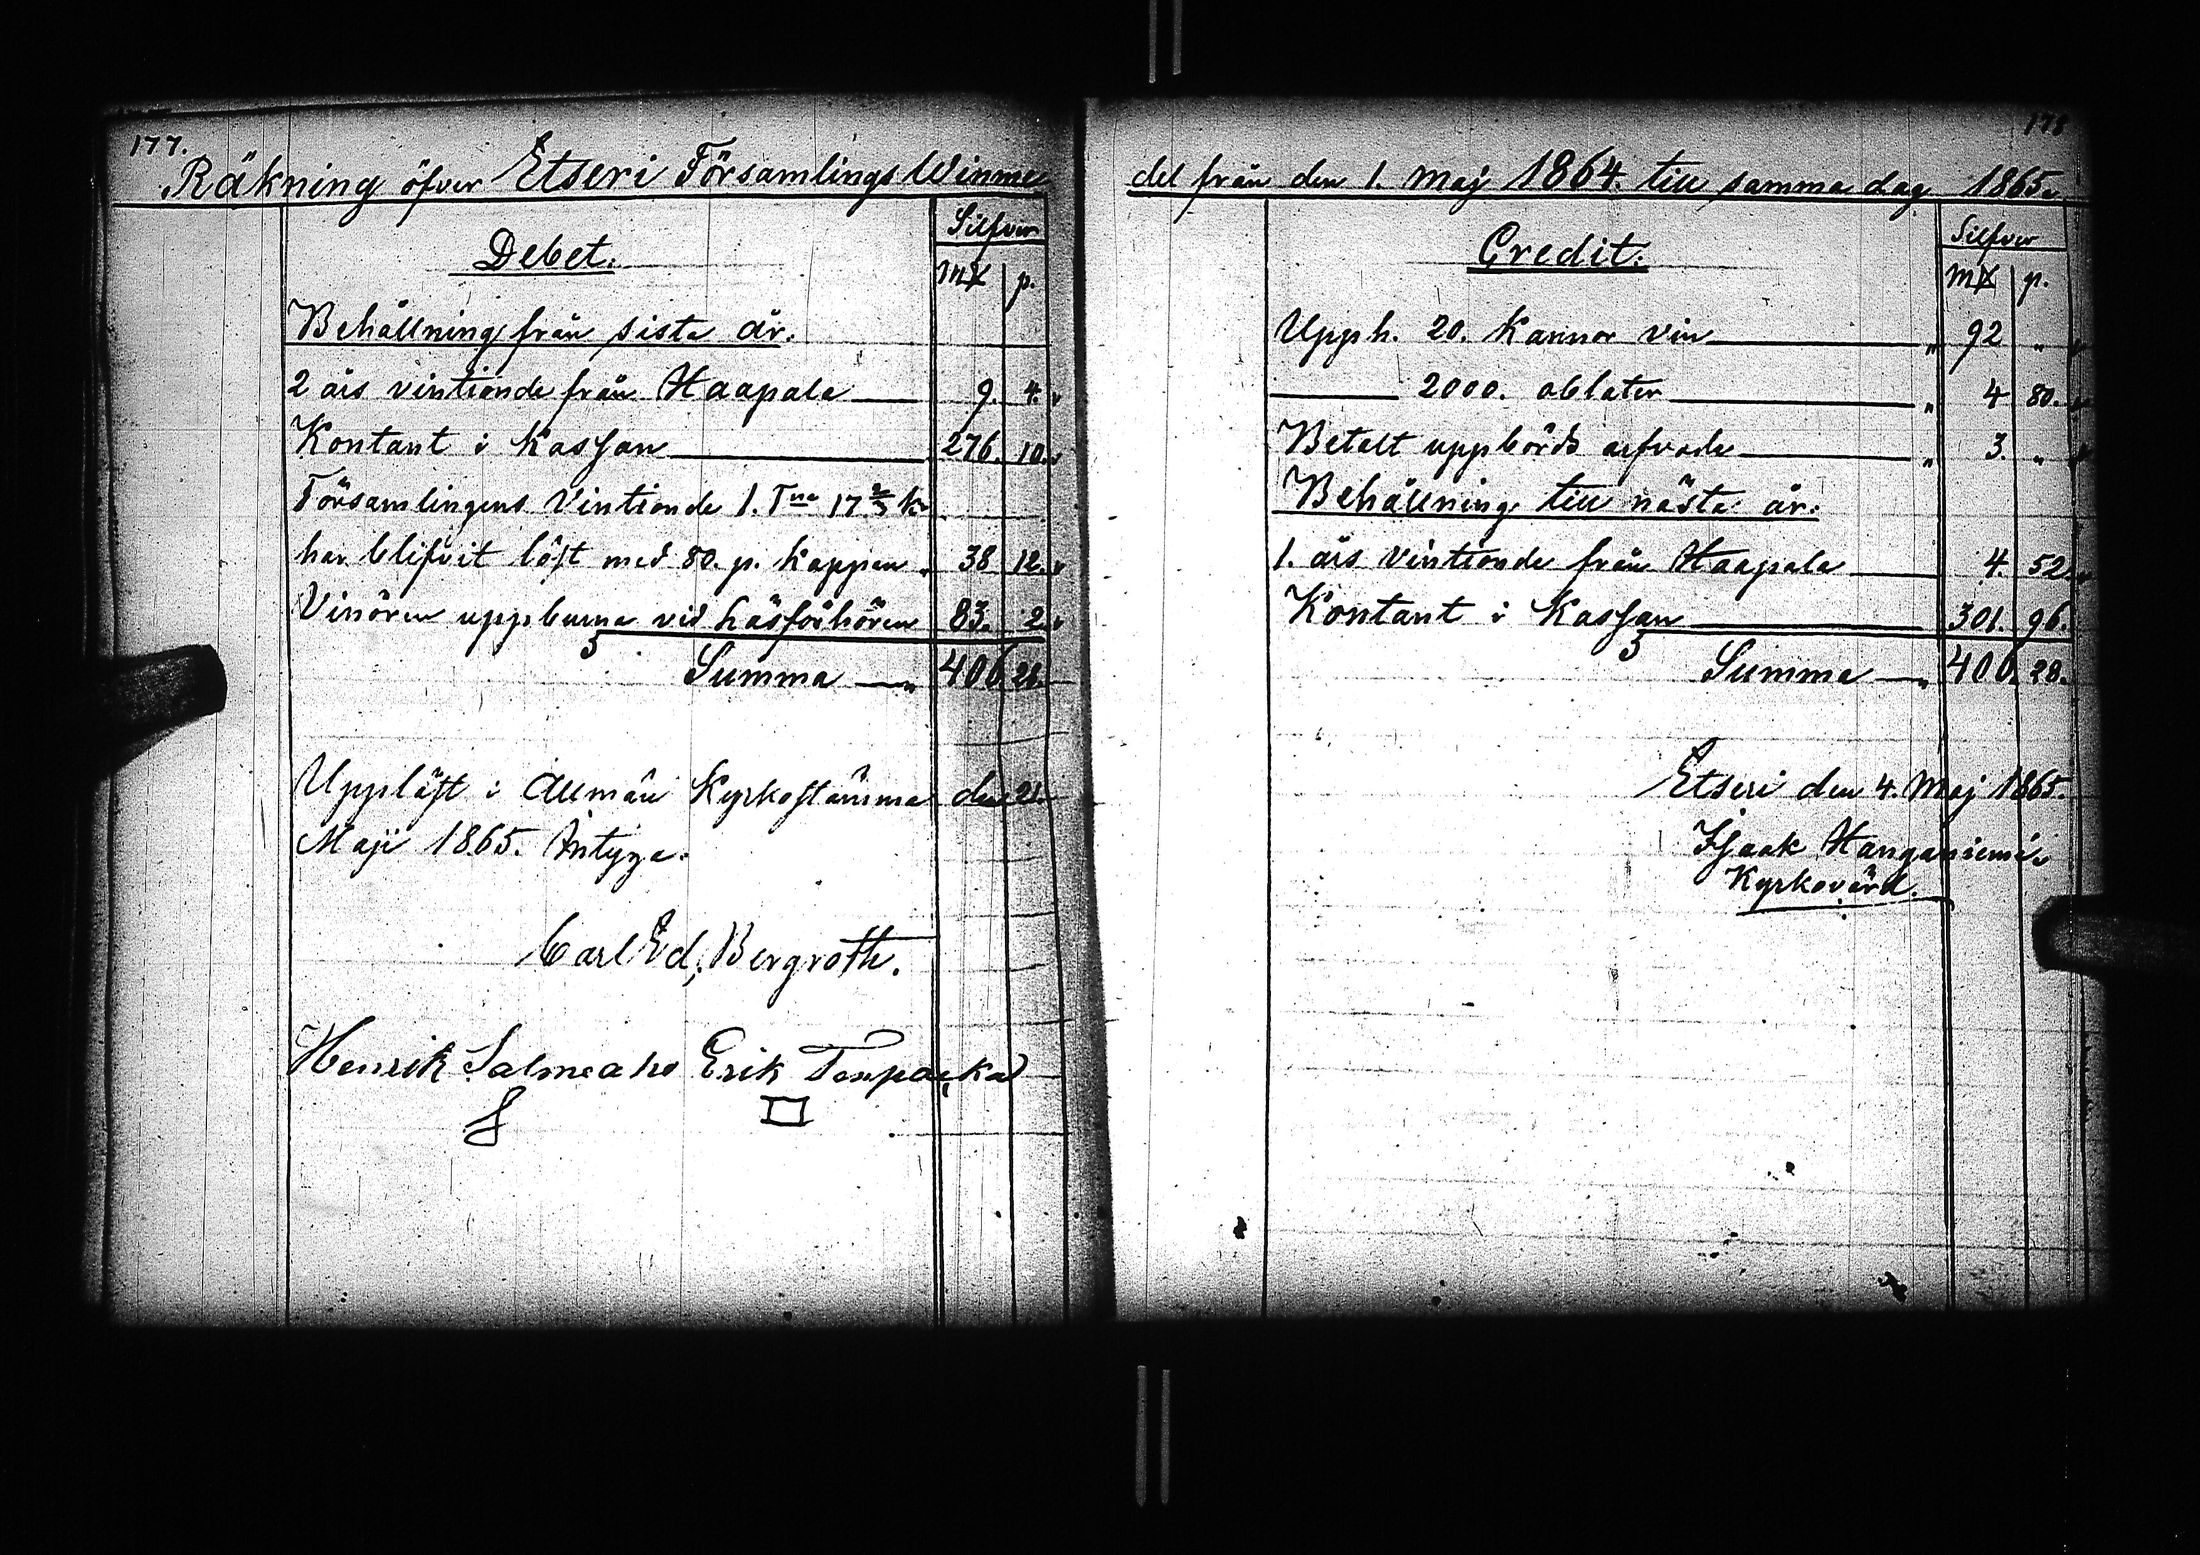 177.
Räkning öfver Etseri Församlings Winme
Debet.
Silfver
m# p.
Behållning från sista år.
2 års vintionde från Haapala 9. 4.
Kontant i Kassan 276. 10.
Församlingens Vintionde 1. Tna 17 2/3 k
har blifvit löst med 80. p. kappen „ 38 12.
Vinören uppburna vid Läsförhören 83. 2.
Summa „ 406 28.
Uppläst i Allmän Kyrkostämma den 21.
Maji 1865. Intyga.
Carl Ed, Bergroth.
Henrik Salmeaho Erik
178
del från den 1. Maj 1864. till samma dag 1865.
Credit.
Silfver
m# p.
Upph. 20. Kannor vin „ 92 „
2000. oblater „ 4 80.
Betalt uppbörds arfvode „ 3. „
Behållning till nästa år.
1. års vintionde från Haapala 4. 52
Kontant i Kassan 301. 96.
Summa „ 406. 28.
Etseri den 4. Maj 1865.
Isaak Hanganiemi
Kyrkovärd.